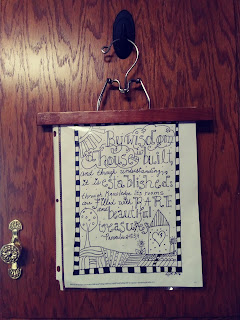 By wisdom
a house is built,
and through understanding
it is established;
through knowledge its rooms
are filled with RARE
and beautiful
treasures.
Proverbs 24:3-4